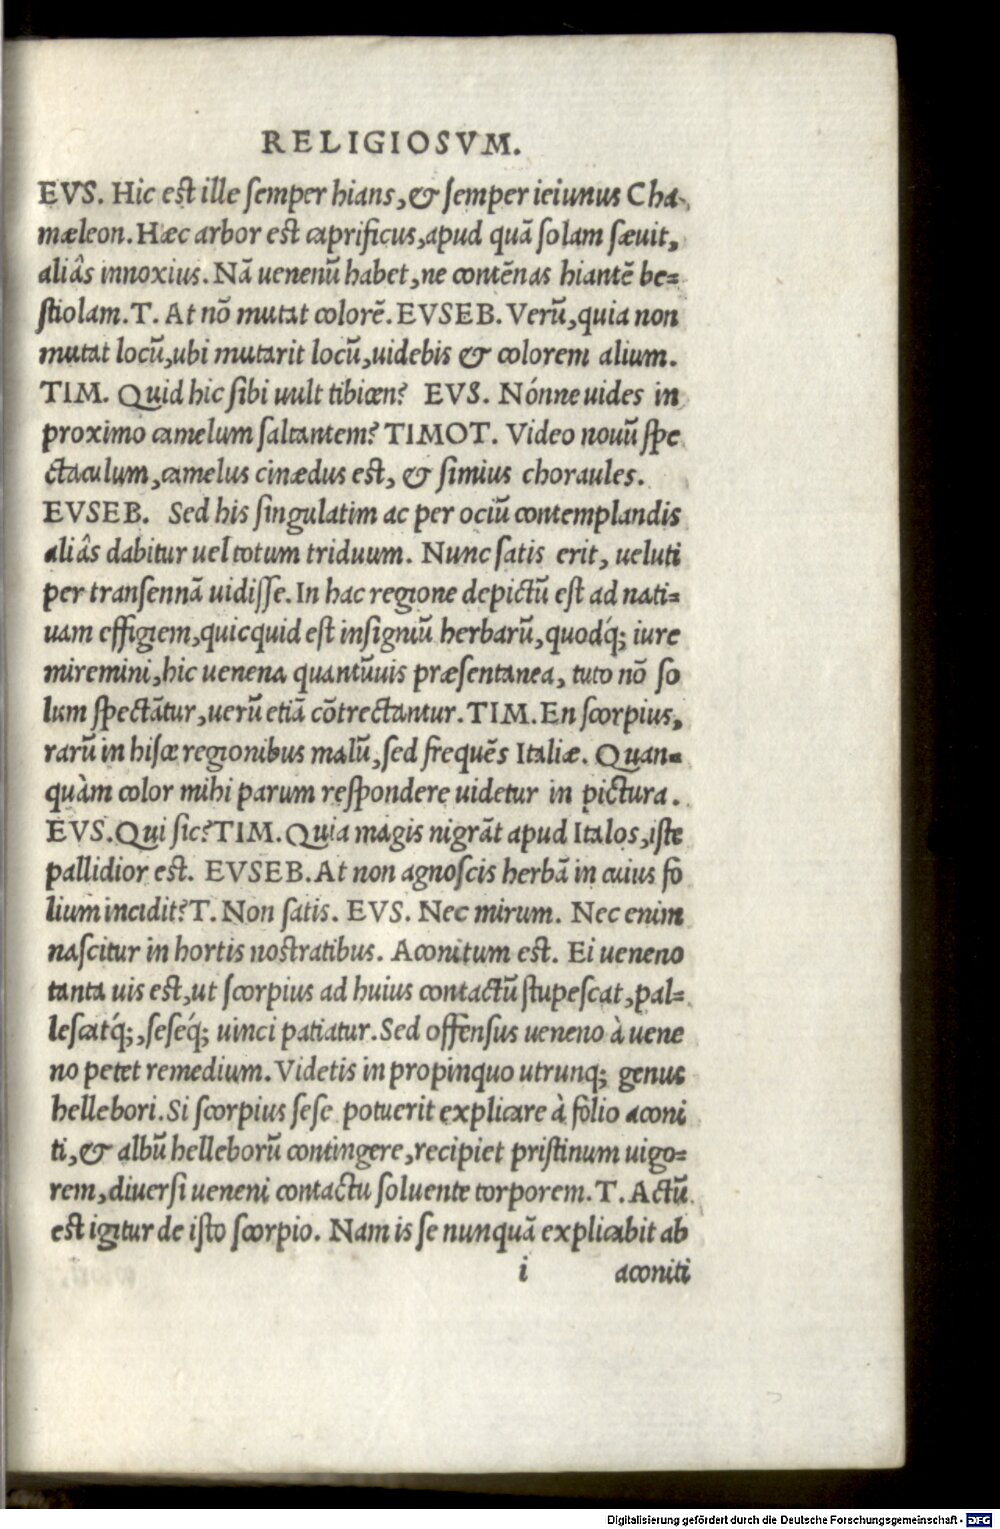 RELIGIOSVM.
EVS. Hic est ille semper hians, & semper ieiunus Cha-
mæleon. Hæc arbor est caprificus, apud quā solam sæuit,
aliâs innoxius. Nā uenenū habet, ne contēnas hiantē be=
stiolam. T. At nō mutat colorē. EVSEB. Verū, quia non
mutat locū, ubi mutarit locū, uidebis & colorem alium.
TIM. Quid hic sibi uult tibicen? EVS. Nónne uides in
proximo camelum saltantem? TIMOT. Video nouū spe
ctaculum, camelus cinædus est, & simius choraules.
EVSEB. Sed his singulatim ac per ociū contemplandis
aliâs dabitur uel totum triduum. Nunc satis erit, ueluti
per transennā uidisse. In hac regione depictū est ad nati=
uam effigiem, quicquid est insigniū herbarū, quodq́; iure
miremini, hic uenena quantūuis præsentanea, tuto nō so
lum spectātur, uerū etiā cōtrectantur. TIM. En scorpius,
rarū in hisce regionibus malū, sed frequēs Italiæ. Quan=
quàm color mihi parum respondere uidetur in pictura.
EVS. Qui sic? TIM. Quia magis nigrāt apud Italos, iste
pallidior est. EVSEB. At non agnoscis herbā in cuius fo
lium incidit? T. Non satis. EVS. Nec mirum. Nec enim
nascitur in hortis nostratibus. Aconitum est. Ei ueneno
tanta uis est, ut scorpius ad huius contactū stupescat, pal=
lescatq́;, seseq́; uinci patiatur. Sed offensus ueneno à uene
no petet remedium. Videtis in propinquo utrunq; genus
hellebori. Si scorpius sese potuerit explicare à folio aconi
ti, & albū helleborū contingere, recipiet pristinum uigo=
rem, diuersi ueneni contactu soluente torporem. T. Actū
est igitur de isto scorpio. Nam is se nunquā explicabit ab
i aconiti
Digitalisierung gefördert durch die Deutsche Forschungsgemeinschaft - DFG